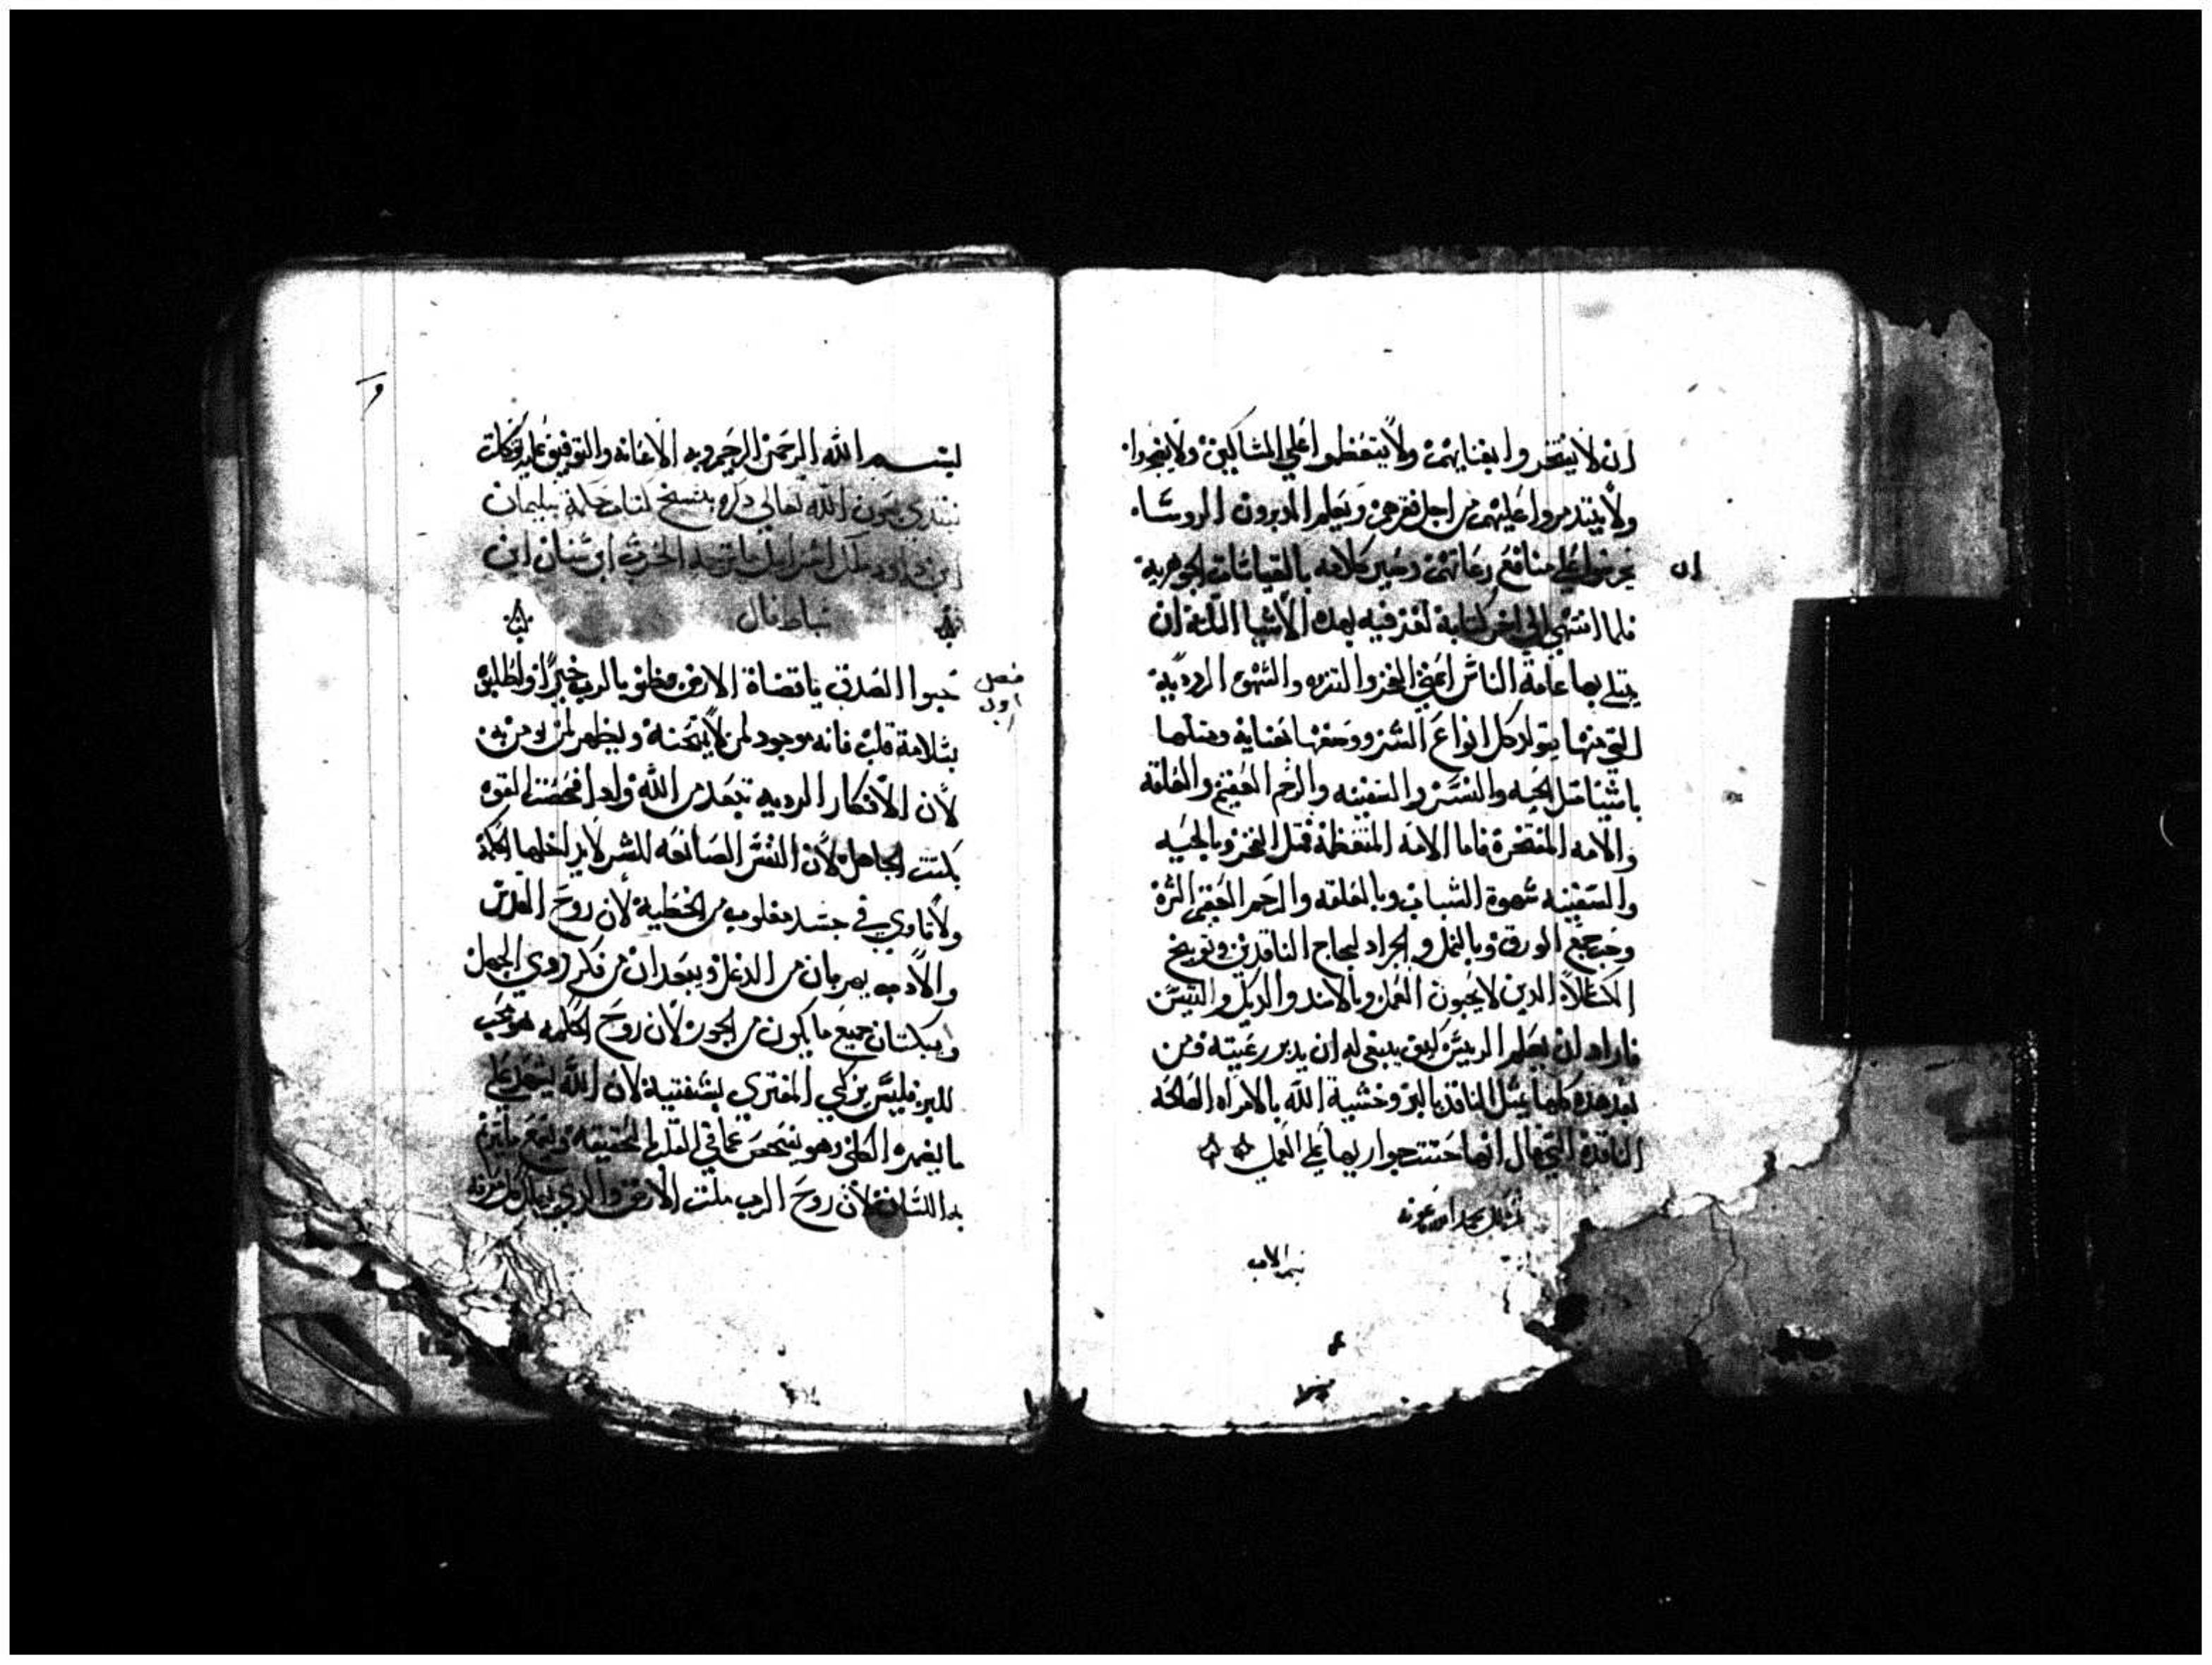 ان لا يفتخروا بغناهم ولا يتعظموا علي المساكين ولا يضجروا
ولا يتذمروا عليهم من اجل فقرهم ويعلم المدبرون الروساء
ان
علي منافع رعاتهم كلامه بالقياسات الجوهرية
فلما انتهي الي اخر كتابة لغز فيه بهذه الأشيا التلاتة ان
يبتلي بها عامة الناس اعني الفخر والتنزه والشهوة الرديية
التي منها يتولد كل انواع الشرور ومثلها
باشيا مثل الحيه والنسر والسفينه والرحم العقيم والعلقه
والامه المفتخرة فاما الامة المتعظمة فمثل الفخر وبالحيه
والسفينه شهوة الشباب وبالعلقه والرحم العقيم الشره
جمع الورق وبالنمل والجراد لجاج الناقدين وتوبيخ
الكسالا الدين لا يحبون العمل وبالاسد والديك والتيس
فاراد ان يعلم الرييس كيف ينبغي له ان يدبر رعيته ومن
بعد هذه كلها مثل الناقد بالبر وخشية الله بالامراه الصالحه
الناقدة التي قال انها حتت جوارها علي العمل
بسم الاب
بسم الله الرحمن الرحيم وبه الأعانه والتوفيق عليه توكلت
نبتدي بعون الله تعالي دكره بنسخ كتاب حكمة سليمان
ابن داود ملك اسراييل
قال
فصل
اول
حبوا الصدق يا قضاة الارض فظنو بالرب خيرًا واطلبوه
بسلامة قلب فانه موجود لمن لا يمتحنه ويظهر لمن يومن به
لأن الأفكار الرديه تبعد من الله وادا فحصت القوه
بكتت الجاهل لأن النفس الصانعه للشر لا يداخلها الحكمة
ولا تاوي في جسد مغلوب من الخطية لأن روح القدس
والأدب يهربان من الدغل ويبعدان من فكر دوي الجهل
ويبكتان جميع ما يكون من الجور لأن روح الحكمه هو محب
للبر فليس يزكي المفتري بشفتيه لأن الله يشهد علي
ما يضمره الكلي وهو يفحص عما في القلب الحقيقه ويسمع ما يترنم
به اللسان لأن روح الرب ملت الأرض والدي